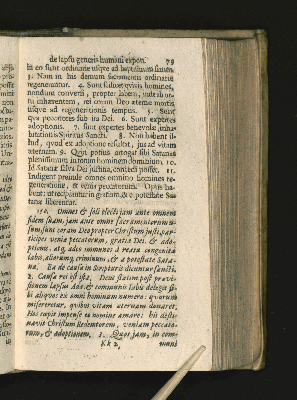 de lapsu generis humani expon. 79
hi en sunt ordinarie usque ad baptismum suum.
3. Nam in his demum sacramentis ordinarie
regenerantur. 4. Sunt scilicet vivi homines,
nondum conversi, propter labem,
inhærentem, rei coram Deo æternæ mortis
usque ad regenerationis tempus. 5. Sunt
qua peccatores sub ira Dei. 6. Sunt expertes
adoptionis. 7. sunt expertes benevolæ inhabitationis
Spiritus Sancti. 8. Non habent illud,
quod ex adoptione resultat, jus ad vitam
æternam. 9. Quin potius attogat sibi Satanas
plenissimum in totum hominem dominium. 10.
Id Satanæ Dei justitia, concedi posset. 11.
Indigent proinde omnes omnino homines regeneratione,
& venia peccatorum. Opus habent:
ut recipiantur in gratiam, & e potestate Satanæ
liberentur.
150. Omnes & soli electi jam ante omnem
fidem suam, jam ante omne sacramentorum
sunt coram Deo propter Christum justi, participes
veniæ peccatorum, gratiæ Dei, & adoptionis,
atq; adeo immunes à reatu congenitæ
labis, aliorumq; criminum, & à potestate Satanæ.
Ea de causa in Scripturis dicuntur sancti.
2. Causa rei est ista. Deus statim post prævisionem
lapsus Adæ, & communis labis delegit sibi
aliquos ex omni hominum numero: quorum
misereretur, quibus vitam æternam donaret.
Hos cæpit impense ex nomine amare: his destinavit
Christum Redemtorem, veniam peccatorum,
& adoptionem. 3. Quos jam, in com-
Kk 2 muni